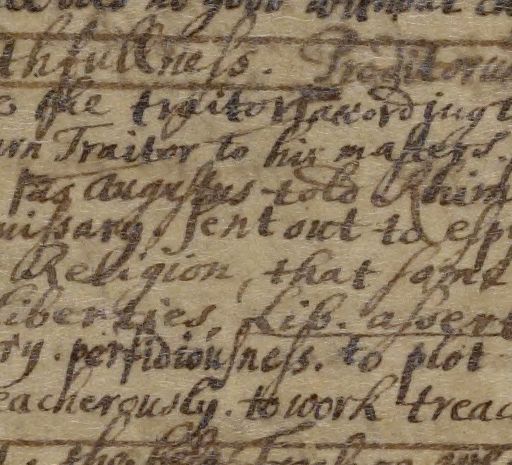 thfullness. Proditorius
the traitor according t
urn Traitor to his masters.
as Augustus told Rhim
missary sent out to esp
Religion, that some
liberties, Lib. assert
ry. perfidiousness. to plot
eacherously. to work treac